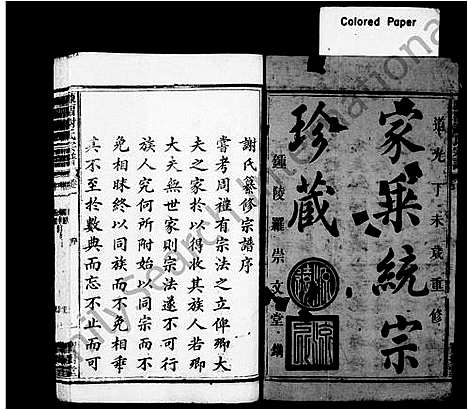 Colored Paper
道光丁未歲重修
家乘統宗
珍藏
鍾陵羅崇文堂鐫
謝氏纂修宗譜序
嘗考周禮有宗法之立俾卿大
夫之家於以得收其族人若卿
大夫無世家則宗法遂不可行
族人究何所附始以同宗而不
免相昧終以同族而不免相乖
其不至於數典而忘不止而可